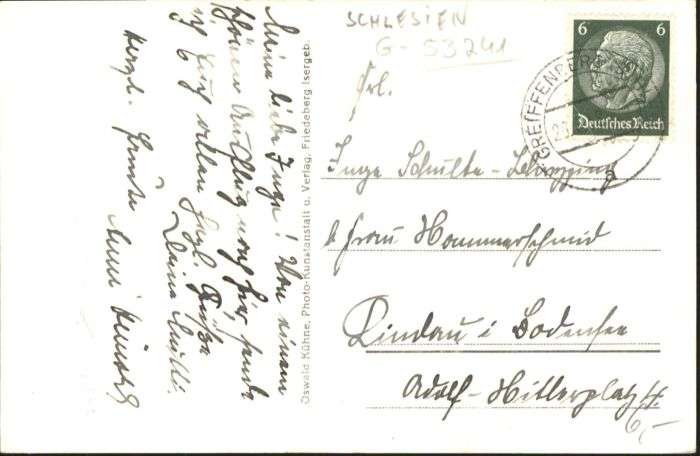 SCHLESIEN
G-53241
6 6
Deutsches Reich
GREIFFENBERG
Frl.
Inge Schulte-
b/ Frau Hammerschmid
Lindau i. Bodensee
Adolf-Hitlerplatz
6,-
Oswald Kühne, Photo-Kunstanstalt u. Verlag, Friedeberg Isergeb.
Meine liebe Inge! Von einem
schönen Ausflug nach hier sende
ich Dir vielen herzl. Grüße
Deine Mutti.
Herzl. Grüße Anni